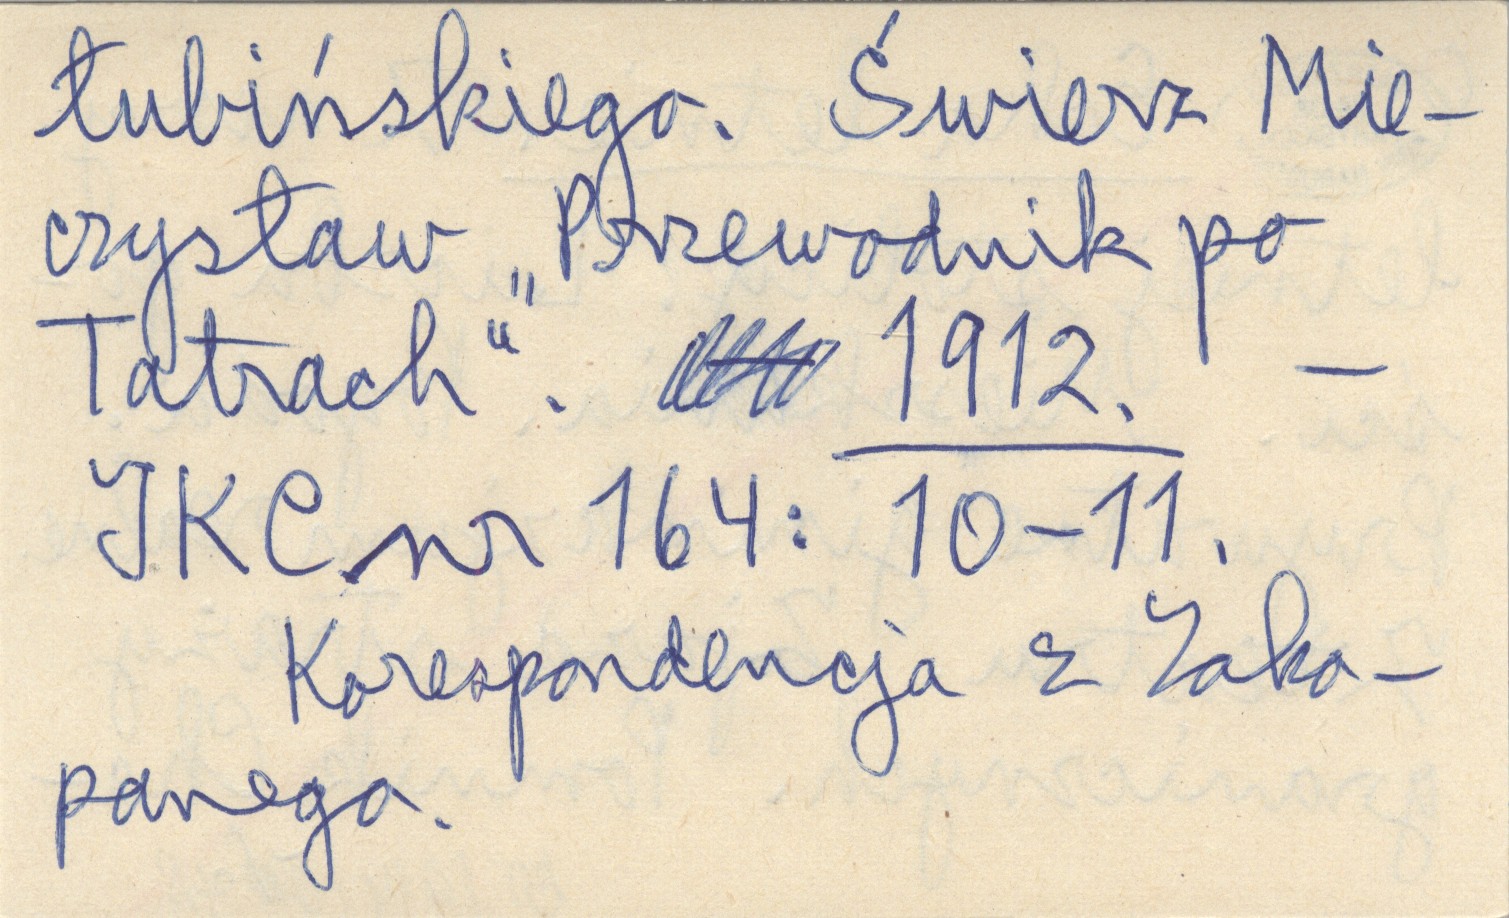 łubińskiego. Świerz Mie-
czysław „Przewodnik po
Tatrach“. 1912. —
IKC nr 164: 10-11.
Korespondencja z Zako-
panego.